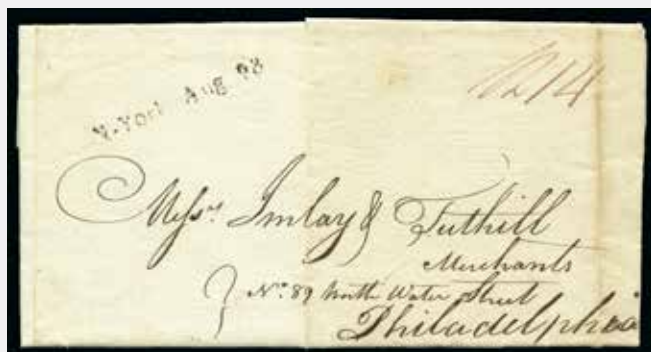 N-York Aug
Messrs Imlay & Tuthill
Merchants
No 89 North Water Street
Philadelphia